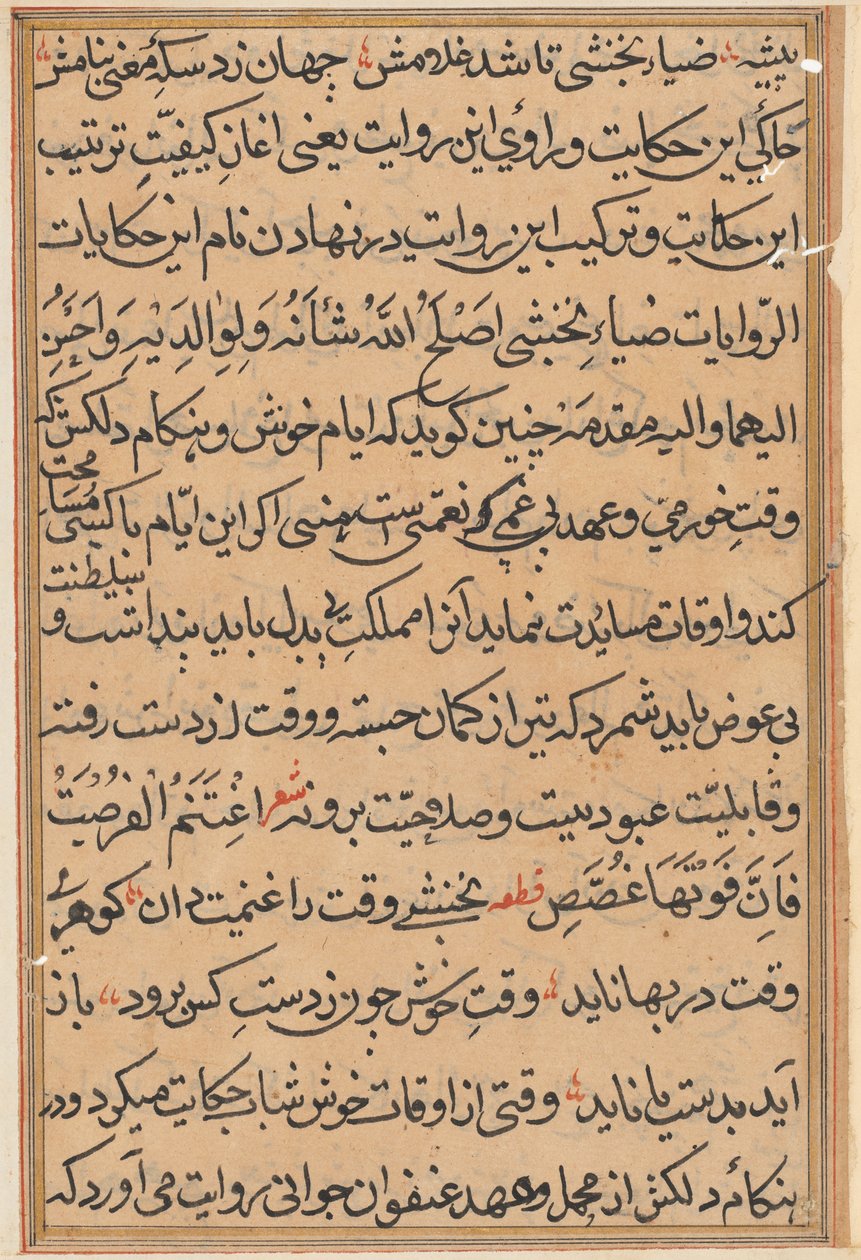 بیشه ضیاء نخشبی تا شد غلامش جهان زد سکهٔ معنی بنامش
حاکیٔ این حکایت و راویٔ این روایت یعنی اغازِ کیفیّتِ ترتیب
این حکایت و ترکیب این روایت در نهادن نام این حکایات
الرّوایات ضیاءِ نخشبی اَصْلَحَ اللّٰهُ شَأنَهُ وَلِوٰالِدَیْهِ وَاَحْسَنَ
الیهما والیه مقدمَهْ چنین کوید که ایام خوش و هنکام دلکش که
وقتِ خورمیّ و عهد بی غمی که نعمتی ست اکر این ایّام با کسی
محت
مُسَا
کند و اوقات مسایدت نماید آنرا مملکتِ بی بدل باید پنداشت و
بی عوض باید شمرد که تیر از کمان جسته و وقت از دست رفته
وقابلیّت عبودیت وصلاحِیّت برونه شعر اِغْتَنَمُ الْفُرْصَتُ
فَاِنَّ فَوْتَهَا غُصَّصٍ قطعه نخشبے وقت را غنیمت دان کوهرِ
وقت در بها ناید وقتِ خوش جون ز دستِ کس برود باز
آید بدست یا ناید وقتی از اوقات خوش شباب حکایت میکرد و در
هنکامٔ دلکش از مجمل وعهد عنفوان جوانی روایت می آورد که